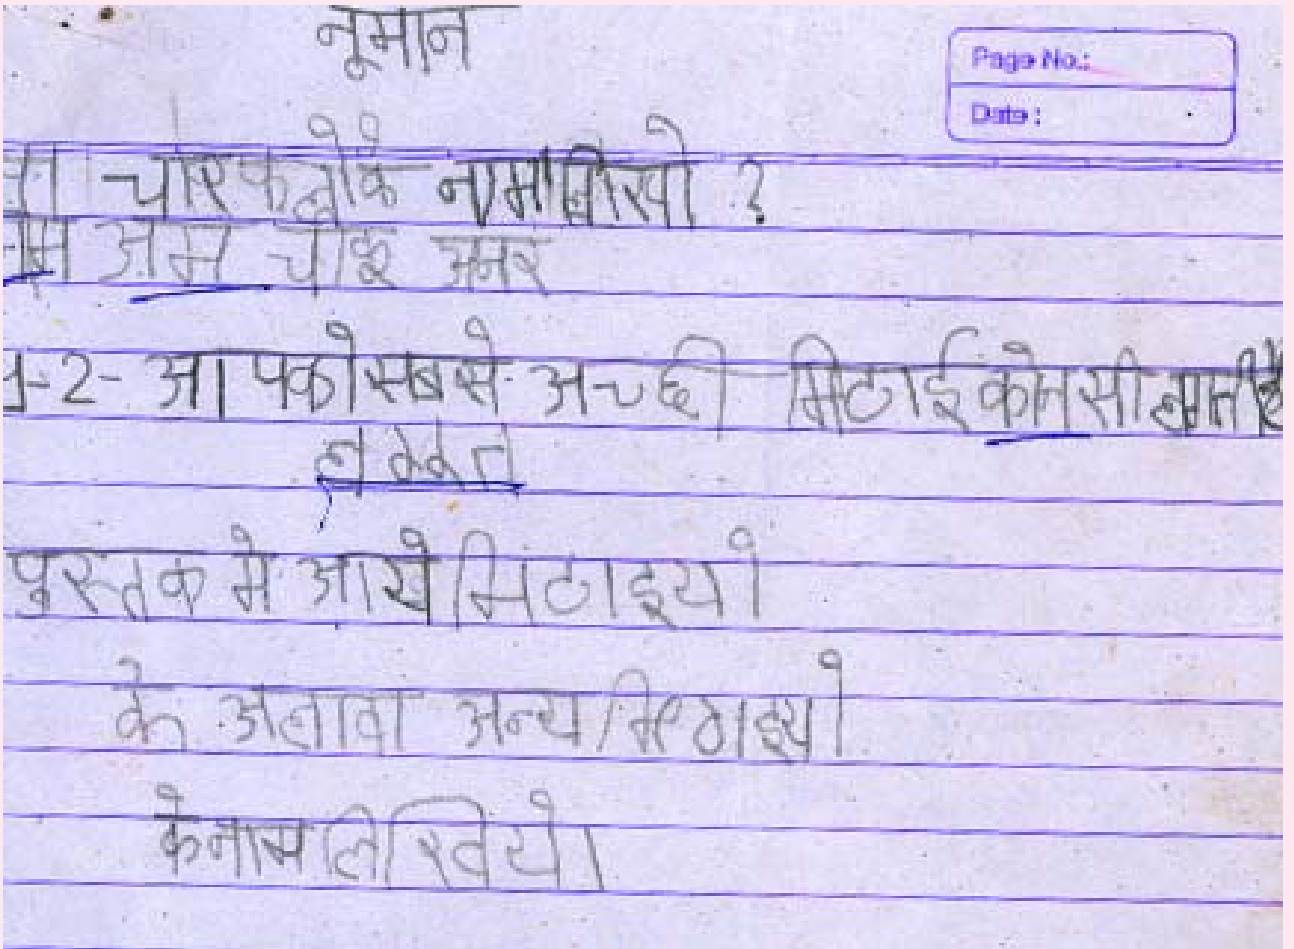 नूमान
Page No.:
Date :
चार फलोके नाम लिखो ?
अम चीकू अनर
2- आपको सबसे अच्छी मिठाई कोन सी लगती है
पुस्तक मे आये मिठाइयो
के अलावा अन्य मिठाइयो
के नाम लिखिये।